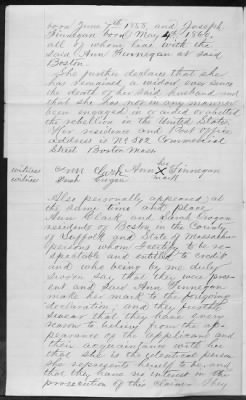 born June 7th 1858, and Joseph
Finnegan born May 4th 1860,
all of whom live with the
said Ann Finnegan at said
Boston.
She further declares that she
has remained a widow ever since
the death of her said husband, and
that she has not in any manner
been engaged in or aided or abetted
the rebellion in the United States.
Her residence and Post Office
address is No 382 Commercial
Street Boston Mass
witness Ann Clark Ann his X mark Finnegan
witness Sarah Cragen
Also personally appeared at
the same time and place
Ann Clark and Sarah Cragen
residents of Boston in the County
of Suffolk and State of Massachusetts
persons whom I certify to be re-
spectable and entitled to credit
and who being by me duly
sworn say that they were pres-
ent and said Ann Finnegan
make her mark to the foregoing
declaration, and they further
swear that they have every
reason to believe from the ap-
pearance of the applicant and
their acquaintance with her
that she is the identical person
she represents herself to be, and
that they have no interest in the
prosecution of this claim. They